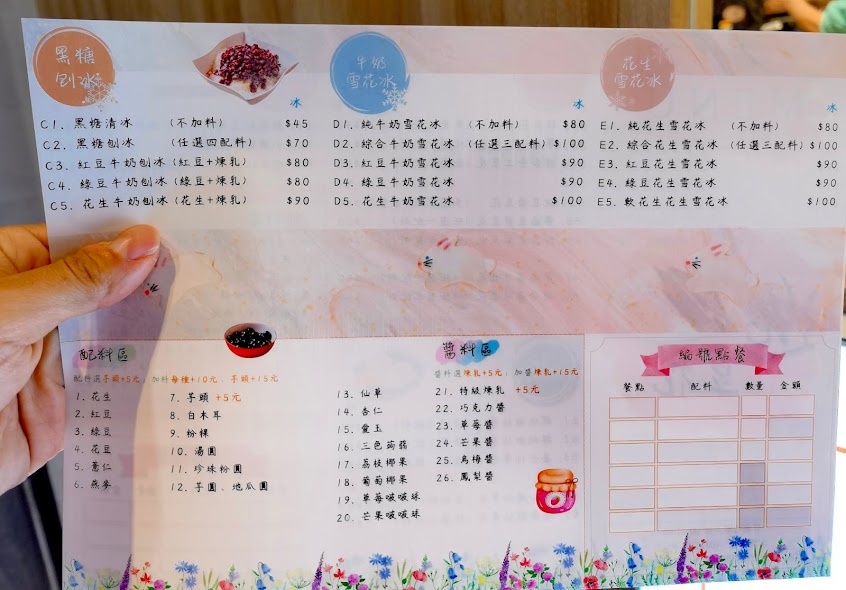 黑糖
刨冰
冰
C1. 黑糖清冰 (不加料) $45
C2. 黑糖刨冰 (任選四配料) $70
C3. 紅豆牛奶刨冰 (紅豆+煉乳) $80
C4. 綠豆牛奶刨冰 (綠豆+煉乳) $80
C5. 花生牛奶刨冰 (花生+煉乳) $90
牛奶
雪花冰
冰
D1. 純牛奶雪花冰 (不加料) $80
D2. 綜合牛奶雪花冰 (任選三配料) $100
D3. 紅豆牛奶雪花冰 $90
D4. 綠豆牛奶雪花冰 $90
D5. 花生牛奶雪花冰 $100
花生
雪花冰
冰
E1. 純花生雪花冰 (不加料) $80
E2. 綜合花生雪花冰 (任選三配料) $100
E3. 紅豆花生雪花冰 $90
E4. 綠豆花生雪花冰 $90
E5. 軟花生花生雪花冰 $100
配料區
配料選芋頭+5元、加料每種+10元、芋頭+15元
1. 花生
2. 紅豆
3. 綠豆
4. 花豆
5. 薏仁
6. 燕麥
7. 芋頭 +5元
8. 白木耳
9. 粉粿
10. 湯圓
11. 珍珠粉圓
12. 芋圓、地瓜圓
13. 仙草
14. 杏仁
15. 愛玉
16. 三色蒟蒻
17. 荔枝椰果
18. 葡萄椰果
19. 草莓啵啵球
20. 芒果啵啵球
醬料區
醬料選煉乳+5元、加醬煉乳+15元
21. 特級煉乳 +5元
22. 巧克力醬
23. 草莓醬
24. 芒果醬
25. 烏梅醬
26. 鳳梨醬
編號點餐
餐點 配料 數量 金額